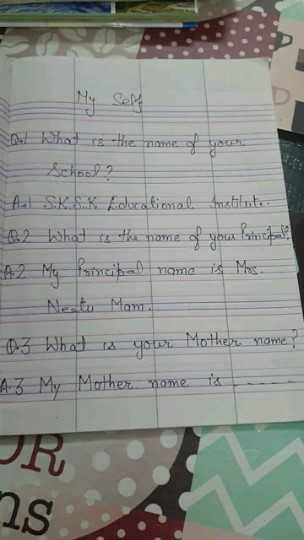 My Self
Q.1 What is the name of your
School?
A.1 S.K.S.K Educational Institute.
Q.2 What is the name of your Principal?
A.2 My Principal name is Mrs.
Neetu Mam.
Q.3 What is your Mother name?
A.3 My Mother name is _ _ _ _
OR
ns